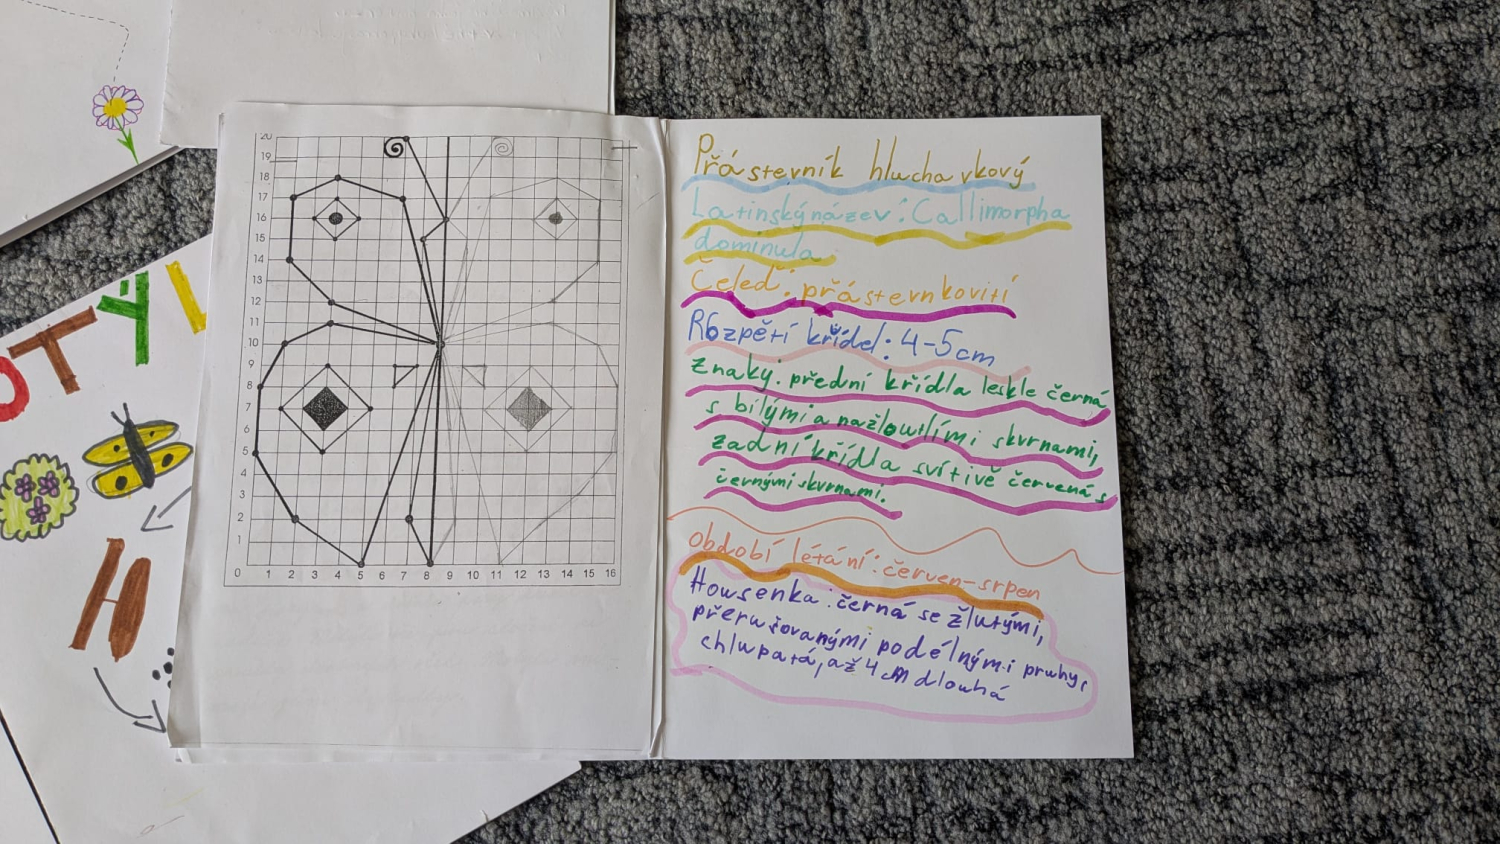 OTÝL
H
20
19
18
17
16
15
14
13
12
11
10
9
8
7
6
5
4
3
2
1
0 1 2 3 4 5 6 7 8 9 10 11 12 13 14 15 16
Přástevník hluchavkový
Latinský název: Callimorpha
dominula
Čeleď: přástevnkovití
Rozpětí křídel: 4-5cm
Znaky: přední křídla leskle černá
s bílými a nažloutlími skvrnami,
zadní křídla svítivě červená s
černými skvrnami.
období létání: červen-srpen
Housenka: černá se žlutými,
přerušovanými podélnými pruhy,
chlupatá, až 4 cm dlouhá